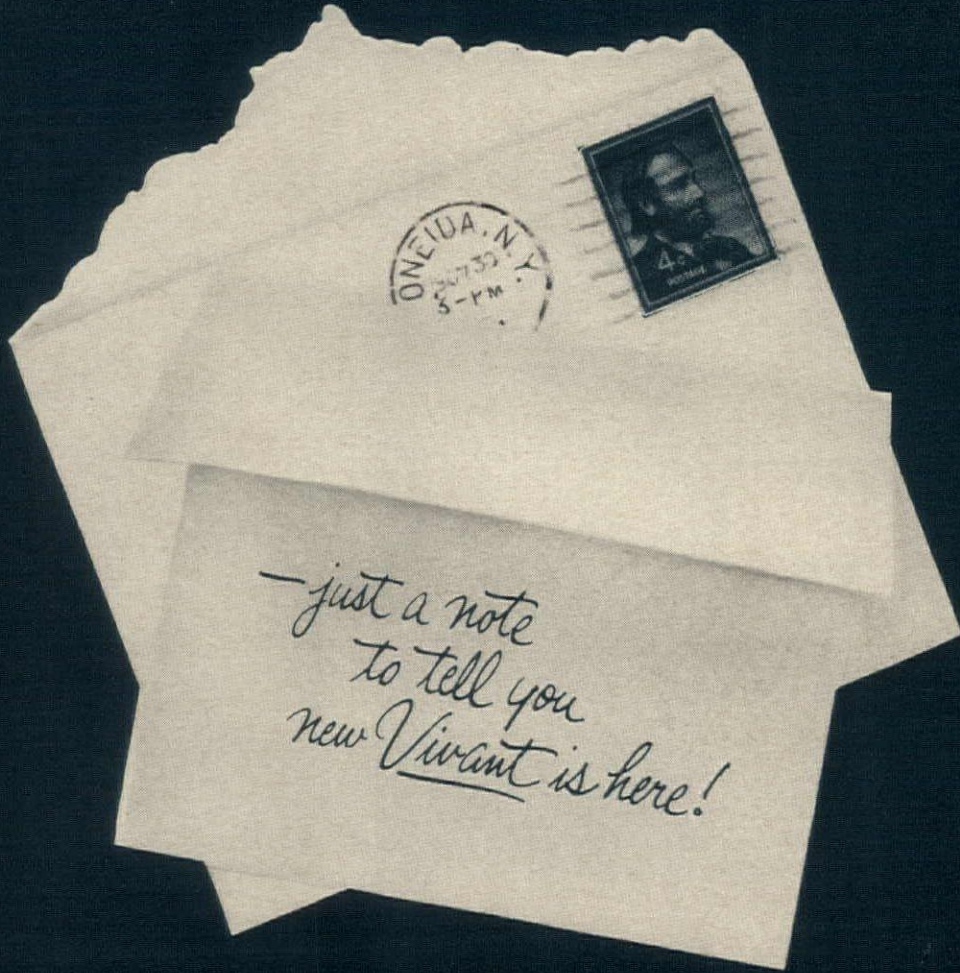 ONEIDA, N.Y.
4¢
POSTAGE
—just a note
to tell you
new Vivant is here!